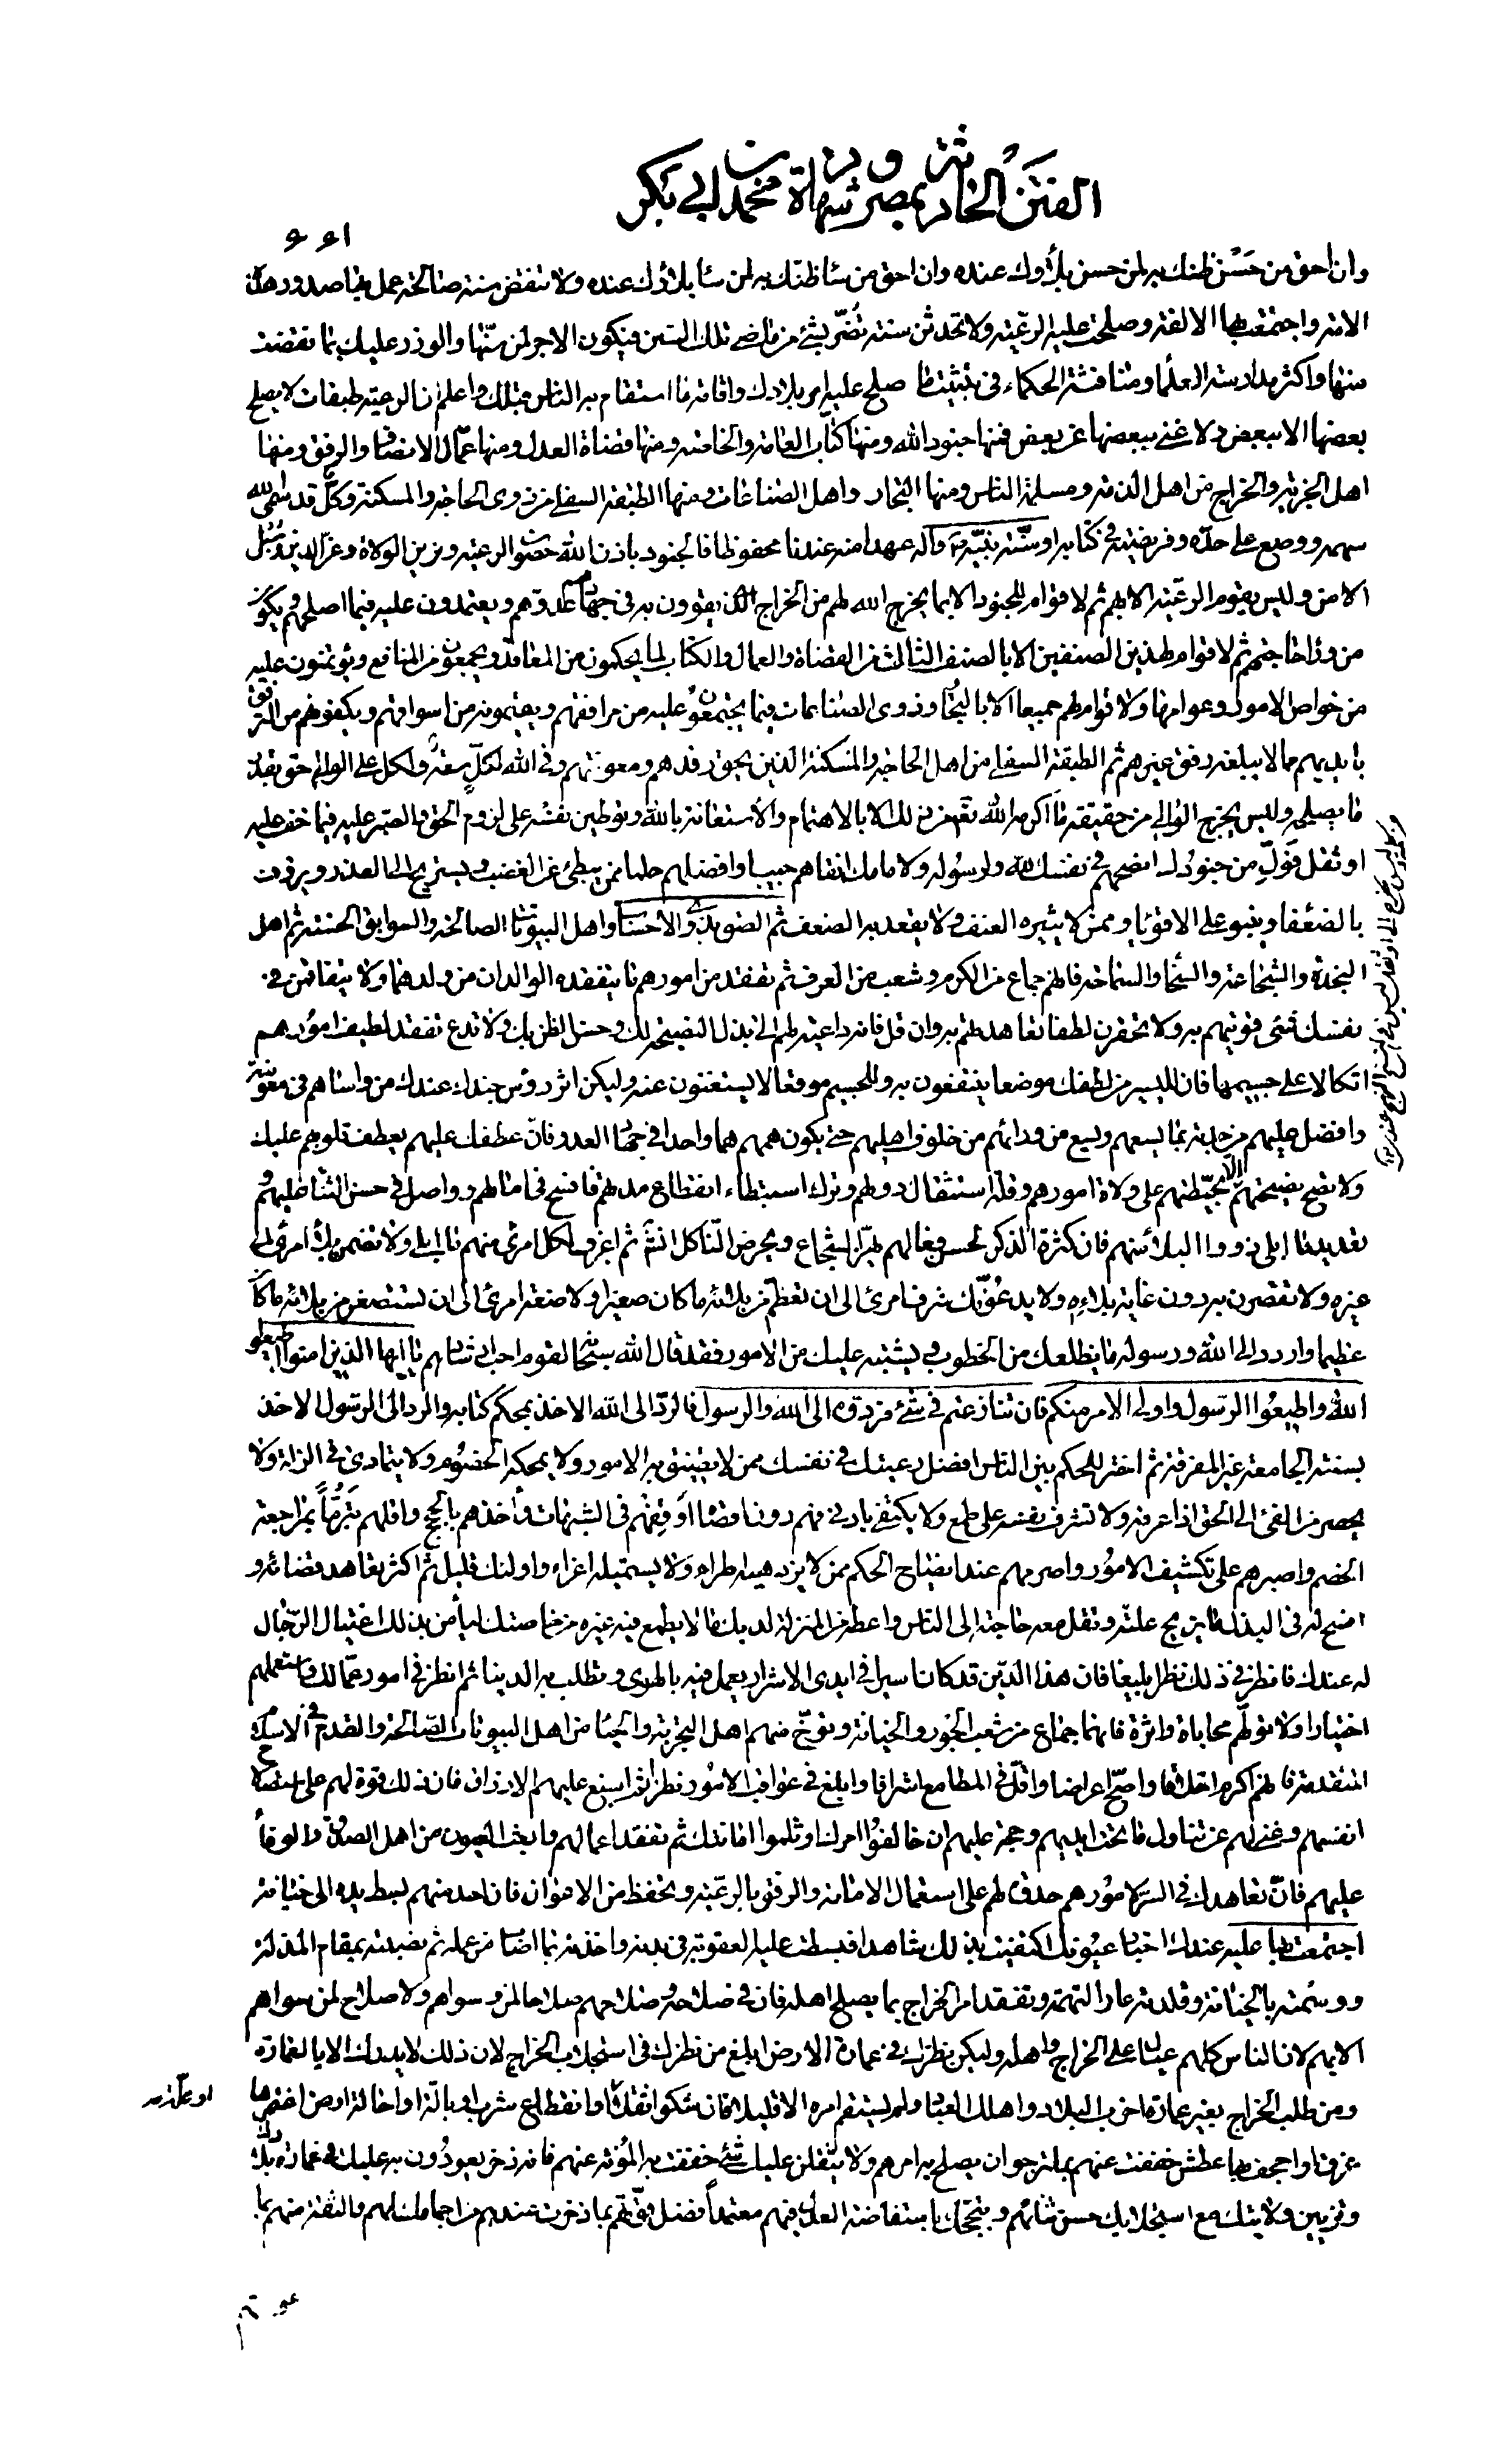 الفتن الحادثة بمصر و شهادة محمد بن ابي بكر
٦٦١
وان احق من حسن ظنك به لمن حسن بلاؤك عنده وان احق من ساء ظنك به لمن ساء بلاؤك عنده ولا تنقض سنة صالحة عمل بها صدور هذه
الامة واجتمعت بها الالفة وصلحت عليها الرعية ولا تحدثن سنة تضر بشئ من ماضى تلك السنن فيكون الاجر لمن سنها والوزر عليك بما نقضت
منها واكثر مدارسة العلماء ومنافثة الحكماء فى تثبيت ما صلح عليه امر بلادك واقامة ما استقام به الناس قبلك واعلم ان الرعية طبقات لا يصلح
بعضها الا ببعض ولا غنى ببعضها عن بعض فمنها جنود الله ومنها كتاب العامة والخاصة ومنها قضاة العدل ومنها عمال الانصاف والرفق ومنها
اهل الجزية والخراج من اهل الذمة ومسلمة الناس ومنها التجار واهل الصناعات ومنها الطبقة السفلى من ذوى الحاجة والمسكنة وكل قد سمى الله
سهمه ووضع على حده وفريضته فى كتابه او سنة نبيه ص وآله عهدا منه عندنا محفوظا فالجنود باذن الله حصون الرعية وزين الولاة وعز الدين وسبل
الامن وليس يقوم الرعية الا بهم ثم لا قوام للجنود الا بما يخرج الله لهم من الخراج الذى يقوون به فى جهاد عدوهم ويعتمدون عليه فيما اصلحهم ويكون
من وراء حاجتهم ثم لا قوام لهذين الصنفين الا بالصنف الثالث من القضاة والعمال والكتاب لما يحكمون من المعاقد ويجمعون من المنافع ويؤتمنون عليه
من خواص الامور وعوامها ولا قوام لهم جميعا الا بالتجار وذوى الصناعات فيما يجتمعون عليه من مرافقهم ويقيمونه من اسواقهم ويكفونهم من الترفق
بايديهم مما لا يبلغه رفق غيرهم ثم الطبقة السفلى من اهل الحاجة والمسكنة الذين يحق رفدهم ومعونتهم وفى الله لكل سعة ولكل على الوالى حق بقدر
ما يصلحه وليس يخرج الوالى من حقيقة ما اكرمه الله تع من ذلك الا بالاهتمام والاستعانة بالله وتوطين نفسه على لزوم الحق والصبر عليه فيما خف عليه
او ثقل فول من جنودك انصحهم فى نفسك لله ولرسوله ولامامك انقاهم جيبا وافضلهم حلما ممن يبطئ عن الغضب ويستريح الى العذر ويرؤف
بالضعفاء وينبو على الاقوياء وممن لا يثيره العنف ولا يقعد به الضعف ثم الصق بذوى الاحساب واهل البيوتات الصالحة والسوابق الحسنة ثم اهل
النجدة والشجاعة والسخاء والسماحة فانهم جماع من الكرم وشعب من العرف ثم تفقد من امورهم ما يتفقده الوالدان من ولدهما ولا يتفاقمن فى
نفسك شئ قويتهم به ولا تحقرن لطفا تعاهدتهم به وان قل فانه داعية لهم الى بذل النصيحة لك وحسن الظن بك ولا تدع تفقد لطيف امورهم
اتكالا على جسيمها فان لليسير من لطفك موضعا ينتفعون به وللجسيم موقعا لا يستغنون عنه وليكن اثر رؤس جندك عندك من واساهم فى معونته
وافضل عليهم من جدته بما يسعهم ويسع من ورائهم من خلوف اهليهم حتى يكون همهم هما واحدا فى جهاد العدو فان عطفك عليهم يعطف قلوبهم عليك
ولا تصح نصيحتهم الا بحيطتهم على ولاة امورهم وقلة استثقال دولهم وترك استبطاء انقطاع مدتهم فافسح فى امالهم وواصل فى حسن الثناء عليهم و
تعديد ما ابلى ذووا البلاء منهم فان كثرة الذكر لحسن فعالهم تهز الشجاع ويحرض الناكل انشاء ثم اعرف لكل امرئ منهم ما ابلى ولا تضمن بلاء امرئ الى
غيره ولا تقصرن به دون غاية بلاءه ولا يدعونك شرف امرئ الى ان تعظم من بلائه ما كان صغيرا ولا ضعة امرئ الى ان تستصغر من بلائه ما كان
عظيما واردد الى الله ورسوله ما يظلعك من الخطوب ويشتبه عليك من الامور فقد قال الله سبحانه لقوم احب ارشادهم يا ايها الذين امنوا اطيعوا
الله واطيعوا الرسول واولى الامر منكم فان تنازعتم فى شئ فردوه الى الله والرسول فالرد الى الله الاخذ بمحكم كتابه والرد الى الرسول الاخذ
بسنته الجامعة غير المفرقة ثم اختر للحكم بين الناس افضل رعيتك فى نفسك ممن لا تضيق به الامور ولا يمحكه الخصوم ولا يتمادى فى الزلة ولا
يحصر من الفئ الى الحق اذا عرفه ولا تشرف نفسه على طمع ولا يكتفى بادنى فهم دون اقصاه اوقفهم فى الشبهات وآخذهم بالحجج واقلهم تبرما بمراجعة
الخصم واصبرهم على تكشيف الامور واصرمهم عند ايضاح الحكم ممن لا يزدهيه اطراء ولا يستميله اغراء واولئك قليل ثم اكثر تعاهد قضائه و
افسح له فى البذل ما يزيح علته وتقل معه حاجته الى الناس واعطه من المنزلة لديك ما لا يطمع فيه غيره من خاصتك ليأمن بذلك اغتيال الرجال
له عندك فانظر فى ذلك نظرا بليغا فان هذا الدين قد كان اسيرا فى ايدى الاشرار يعمل فيه بالهوى وتطلب به الدنيا ثم انظر فى امور عمالك فاستعملهم
اختبارا ولا تولهم محاباة واثرة فانهما جماع من شعب الجور والخيانة وتوخ منهم اهل التجربة والحياء من اهل البيوتات الصالحة والقدم فى الاسلام
المتقدمة فانهم اكرم اخلاقا واصح اعراضا واقل فى المطامع اشرافا وابلغ فى عواقب الامور نظرا ثم اسبغ عليهم الارزاق فان ذلك قوة لهم على استصلاح
انفسهم وغنى لهم عن تناول ما تحت ايديهم وحجة عليهم ان خالفوا امرك او ثلموا امانتك ثم تفقد اعمالهم وابعث العيون من اهل الصدق والوفاء
عليهم فان تعاهدك فى السر لامورهم حدوة لهم على استعمال الامانة والرفق بالرعية وتحفظ من الاعوان فان احد منهم بسط يده الى خيانة
اجتمعت بها عليه عندك اخبار عيونك اكتفيت بذلك شاهدا فبسطت عليه العقوبة فى بدنه واخذته بما اصاب من عمله ثم نصبته بمقام المذلة
ووسمته بالخيانة وقلدته عار التهمة وتفقد امر الخراج بما يصلح اهله فان فى صلاحه وصلاحهم صلاحا لمن سواهم ولا صلاح لمن سواهم
الا بهم لان الناس كلهم عيال على الخراج واهله وليكن نظرك فى عمارة الارض ابلغ من نظرك فى استجلاب الخراج لان ذلك لا يدرك الا بالعمارة
ومن طلب الخراج بغير عمارة اخرب البلاد واهلك العباد ولم يستقم امره الا قليلا فان شكوا ثقلا او انقطاع شرب او بالة او احالة ارض اغتمرها
غرق او اجحف بها عطش خففت عنهم بما ترجو ان يصلح به امرهم ولا يثقلن عليك شئ خففت به المؤنة عنهم فانه ذخر يعودون به عليك فى عمارة بلادك
وتزيين ولايتك مع استجلابك حسن ثنائهم وتبجحك باستفاضة العدل فيهم معتمدا فضل قوتهم بما ذخرت عندهم من اجمامك لهم والثقة منهم بما